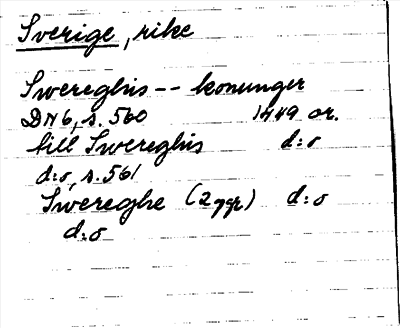 Sverige, rike
Swereghis -- konunger
DN 6, s. 560 1449 or.
till Swereghis d:o
d:o, s. 561
Swereghe (2 ggr) d:o
d:o